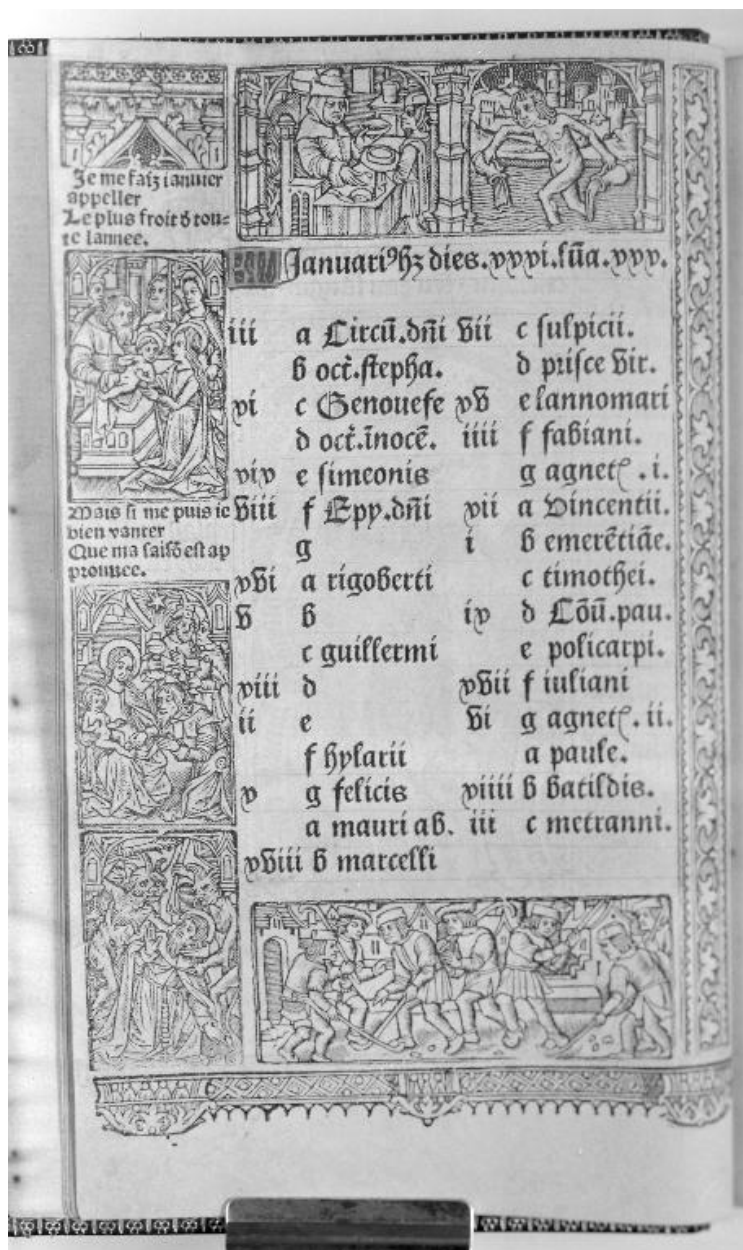 Je me faiz ianuier
appeller
Le plus froit d̕ tou=
te lannee.
Mais si me puis ie
bien vanter
Que ma saisō est ap
prouuee.
Januariꝰ hꝫ dies.xxxi.lūa.xxx.
iii a Circū.dn̄i
b oct̄.stepha.
xi c Genouefe
d oct̄.īnocē.
xix e simeonis
viii f Epy.dn̄i
g
xvi a rigoberti
v b
c guillermi
xiii d
ii e
f hylarii
x g felicis
a mauri ab.
xviii b marcelli
vii c sulpicii.
d prisce vir.
xv e lannomari
iiii f fabiani.
g agnetꝭ.i.
xii a vincentii.
i b emerētiāe.
c timothei.
ix d Cōū.pau.
e policarpi.
xvii f iuliani
vi g agnetꝭ.ii.
a paule.
xiiii b batildis.
iii c metranni.